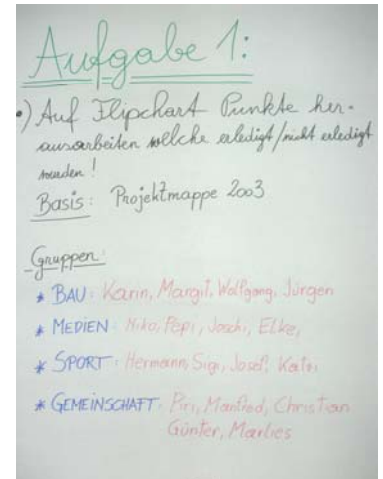 Aufgabe 1:
•) Auf Flipchart Punkte her-
ausarbeiten welche erledigt/nicht erledigt
wurden!
Basis: Projektmappe 2003
Gruppen:
* BAU: Karin, Margit, Wolfgang, Jürgen
* MEDIEN: Niko, Pepi, Joschi, Elke,
* SPORT: Hermann, Sigi, Josef, Kathi
* GEMEINSCHAFT: Piri, Manfred, Christian
Günter, Marlies